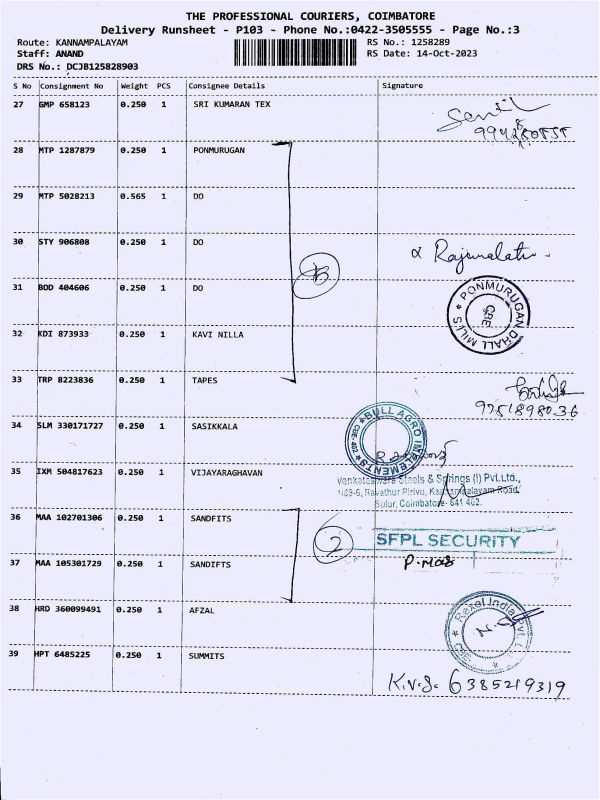 THE PROFESSIONAL COURIERS, COIMBATORE
Delivery Runsheet - P103 - Phone No.:0422-3505555 - Page No.:3
Route: KANNAMPALAYAM RS No.: 1258289
Staff: ANAND RS Date: 14-Oct-2023
DRS No.: DCJB125828903
S No Consignment No Weight PCS Consignee Details Signature
27 GMP 658123 0.250 1 SRI KUMARAN TEX
28 MTP 1287879 0.250 1 PONMURUGAN
29 MTP 5028213 0.565 1 DO
30 STY 906808 0.250 1 DO
31 BOD 404606 0.250 1 DO
PONMURUGAN DHALL MILLS
CBE
32 KDI 873933 0.250 1 KAVI NILLA
33 TRP 8223836 0.250 1 TAPES
34 SLM 330171727 0.250 1 SASIKKALA
BULL AGRO IMPLEMENTS
CBE-402
35 IXM 504817623 0.250 1 VIJAYARAGHAVAN
Venkateswara Steels & Springs (I) Pvt.Ltd.,
Ravathur Pirivu, Kannampalayam Road,
Sulur, Coimbatore- 641 402.
36 MAA 102701306 0.250 1 SANDFITS
2
SFPL SECURITY
37 MAA 105301729 0.250 1 SANDIFTS
38 HRD 360099491 0.250 1 AFZAL
Rexel India Pvt
39 HPT 6485225 0.250 1 SUMMITS
K.V.S. 6385219319